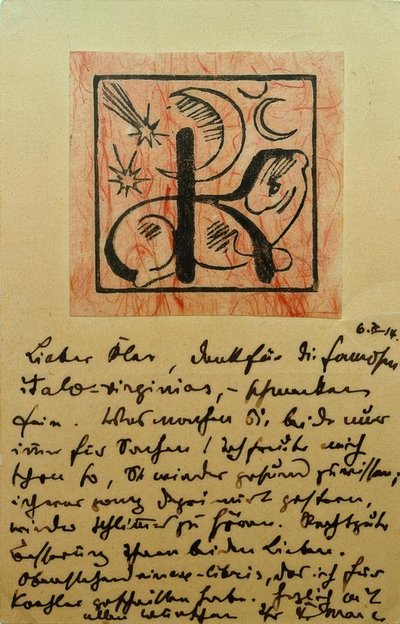 Lieber Klee, Dank für die famosen
italo-virginias, – schmecken
fein. Was machen Sie beide nur
immer für Sachen! Ich freute mich
schon so, Sie wieder gesund zu wissen;
ich war ganz deprimirt gestern,
wieder schlimmes zu hören. Recht gute
Besserung Ihnen beiden Lieben.
Obenstehend ein ex-libris, das ich für
Koehler geschnitten habe. Herzlich mit
allen Wünschen Ihr F. Marc